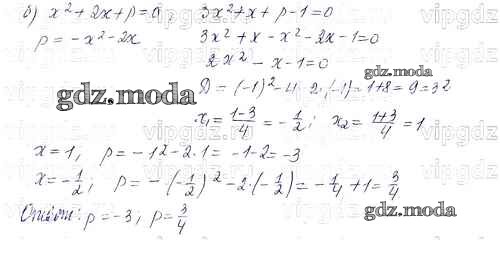 б) x² + 2x + p = 0, 3x² + x + p - 1 = 0
p = -x² - 2x 3x² + x - x² - 2x - 1 = 0
2x² - x - 1 = 0
D = (-1)² - 4·2·(-1) = 1 + 8 = 9 = 3²
x₁ = (1-3)/4 = -1/2; x₂ = (1+3)/4 = 1
x = 1, p = -1² - 2·1 = -1 - 2 = -3
x = -1/2, p = -(-1/2)² - 2·(-1/2) = -1/4 + 1 = 3/4
Ответ: p = -3, p = 3/4
gdz.moda
gdz.moda
gdz.moda
vipgdz
vipgdz
vipgdz